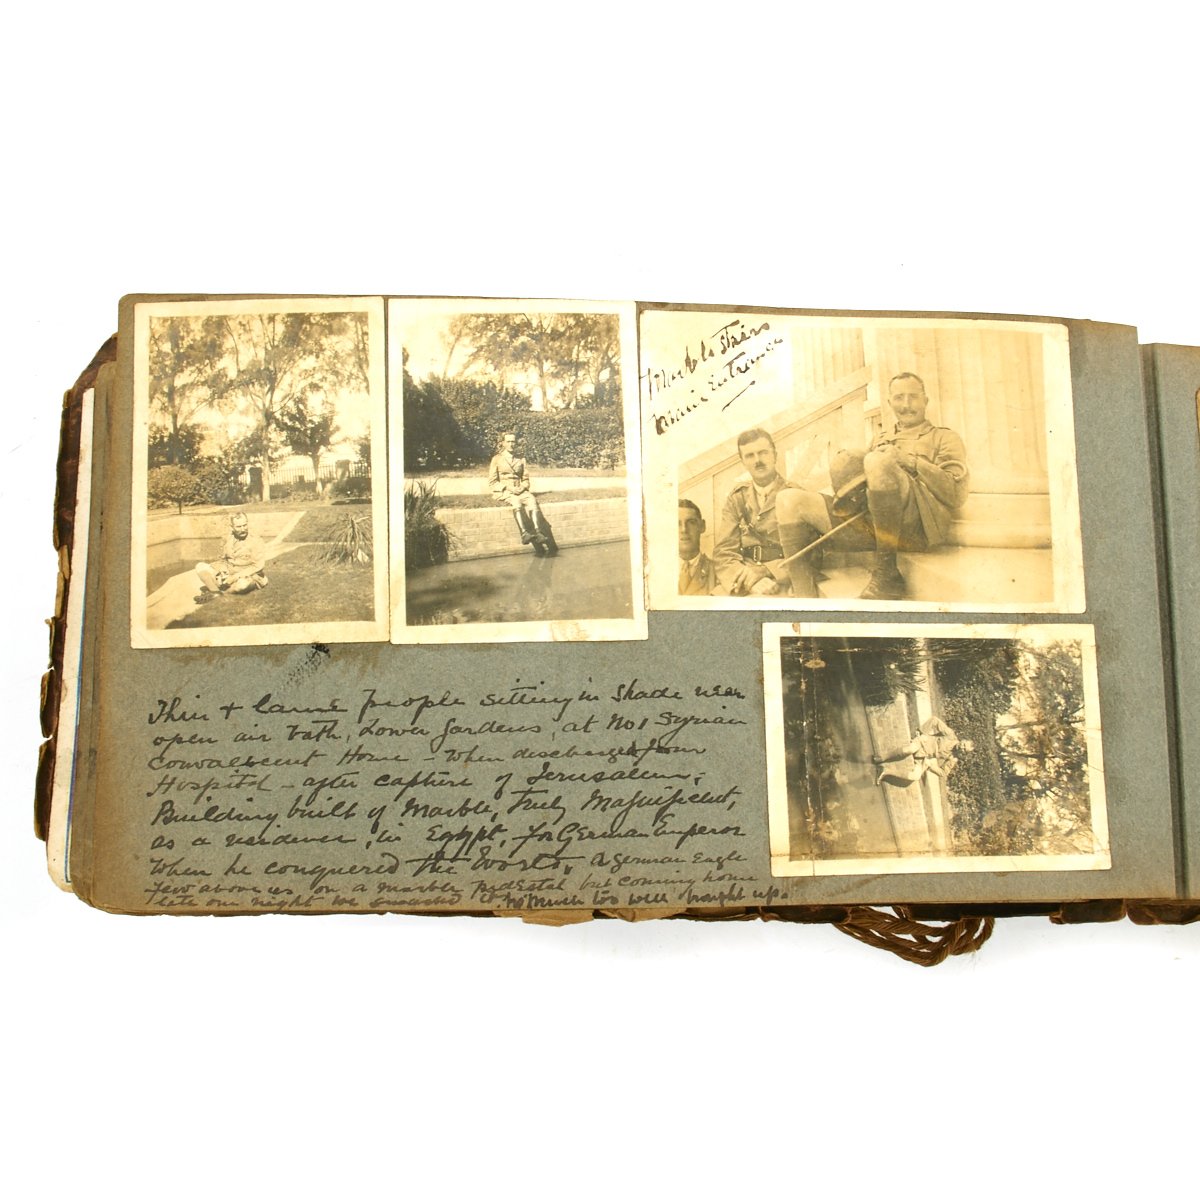 Marble Stairs
Main Entrance
Thin + lame people sitting in shade near
open air bath, Lower Gardens, at No 1 Syrian
Convalescent Home - When discharged from
Hospital - after capture of Jerusalem;
Building built of Marble, Truly Magnificent,
as a residence, in Egypt, for German Emperor
When he conquered the World, a german Eagle
flew above us on a marble pedestal but coming home
late one night we smashed it. too well brought up.